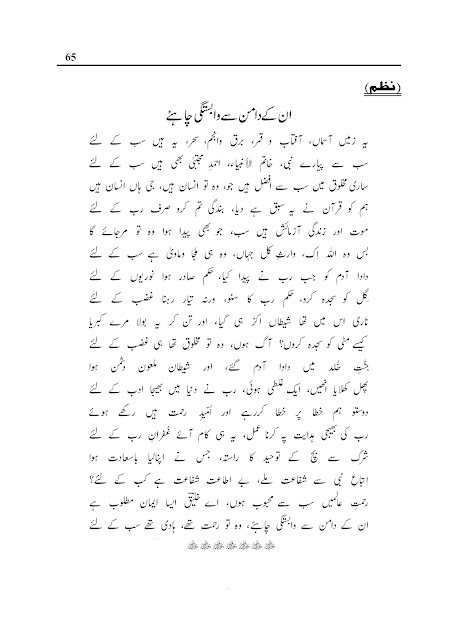 65
(نظم)
ان کے دامن سے وابستگی چاہئے
یہ زمیں آسماں، آفتاب و قمر، برق وانجم، سحر، یہ ہیں سب کے لئے
سب سے پیارے نبی، خاتم الانبیاء، احمدِ مجتبیٰ بھی ہیں سب کے لئے
ساری مخلوق میں سب سے افضل ہیں جو، وہ تو انسان ہیں، جی ہاں انسان ہیں
ہم کو قرآن نے یہ سبق ہے دیا، بندگی تم کرو صرف رب کے لئے
موت اور زندگی آزمائش ہیں سب، جو بھی پیدا ہوا وہ تو مرجائے گا
بس وہ اللہ اِک، وارثِ کل جہاں، وہ ہی ملجا وماویٰ ہے سب کے لئے
دادا آدم کو جب رب نے پیدا کیا، حکم صادر ہوا نوریوں کے لئے
گِل کو سجدہ کرو، حکم رب کا سنو، ورنہ تیار رہنا غضب کے لئے
ناری اس میں تھا شیطاں اکڑ ہی گیا، اور تن کر یہ بولا مرے کبریا
کیسے مٹی کو سجدہ کروں؟ آگ ہوں، وہ تو مخلوق تھا ہی غضب کے لئے
جنّتِ خُلد میں دادا آدم گئے، اور شیطان ملعون دشمن ہوا
پھل کھلایا انھیں، ایک غلطی ہوئی، رب نے دنیا میں بھیجا ادب کے لئے
دوستو ہم خطا پر خطا کررہے اور اُمّید رحمت ہیں رکھے ہوئے
رب کی بھیجی ہدایت پہ کرنا عمل، یہ ہی کام آئے غفرانِ رب کے لئے
شرک سے بچ کے توحید کا راستہ، جس نے اپنالیا باسعادت ہوا
اِتباعِ نبی سے شفاعت ملے، بے اطاعت شفاعت ہے کب کے لئے؟
رحمتِ عالمیں سب سے محبوب ہوں، اے خلیقؔ ایسا ایمان مطلوب ہے
ان کے دامن سے وابستگی چاہئے، وہ تو رحمت تھے، ہادی تھے سب کے لئے